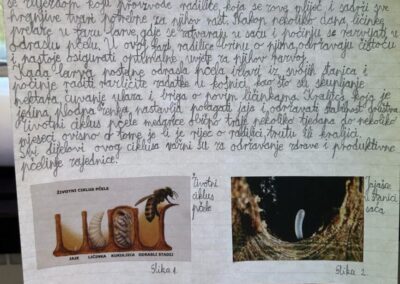 se svježom koju proizvode radilice, koja se zove mliječ i sadrži sve
hranjive tvari potrebne za njihov rast. Nakon nekoliko dana, ličinke
prelaze u fazu larve, gdje se zatvaraju u saću i počinju se razvijati u
odraslu pčelu. U ovoj fazi radilice brinu o njima, održavaju čistoću
i nastoje osigurati optimalne uvjete za njihov razvoj.
Kada larva postane odrasla pčela, izlazi iz svojih stanica i
počinje raditi različite zadatke u košnici, kao što su skupljanje
nektara, čuvanje ulaza i briga o novim ličinkama. Kraljica, koja je
jedina plodna ženka, nastavlja polagati jaja i održavati stabilnost društva
Životni ciklus pčele medarice obično traje nekoliko tjedana do nekoliko
mjeseci ovisno o tome je li je riječ o radilici, trutu ili kraljici.
Svi dijelovi ovog ciklusa važni su za održavanje zdrave i produktivne
pčelinje zajednice.
ŽIVOTNI CIKLUS PČELA
JAJE LIČINKA KUKULJICA ODRASLI STADIJ
Životni
ciklus
pčele
Slika 1
Jajašce
u stanici
saća
Slika 2